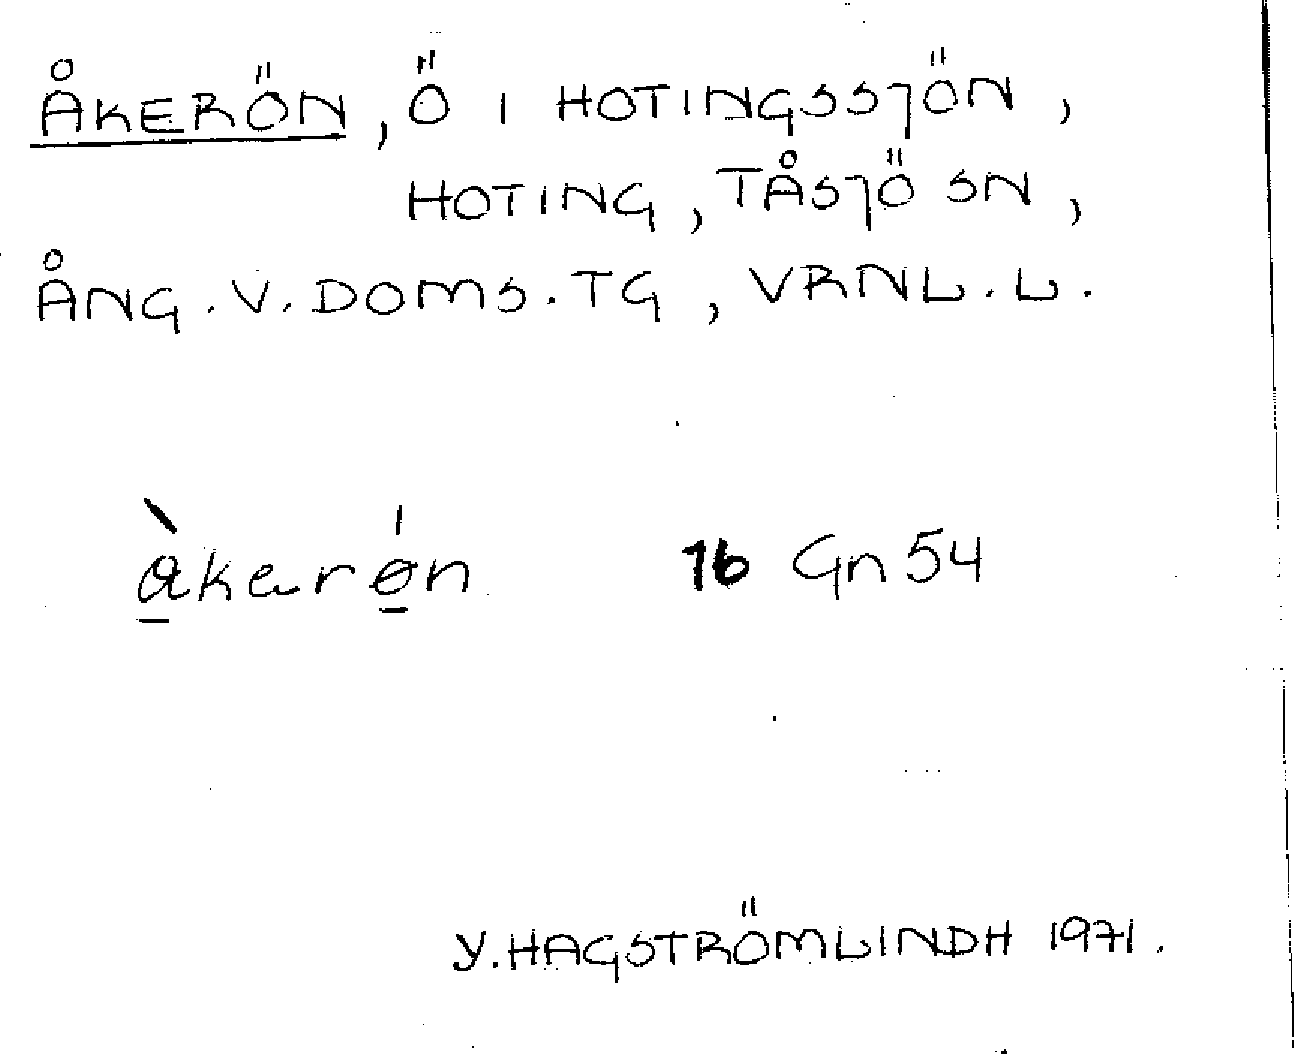 ÅKERÖN, Ö I HOTINGSSJÖN,
HOTING, TÅSJÖ SN,
ÅNG. V. DOMS. TG, VRNL. L.
åkerøn 16 Gn 54
Y. HAGSTRÖMLINDH 1971.